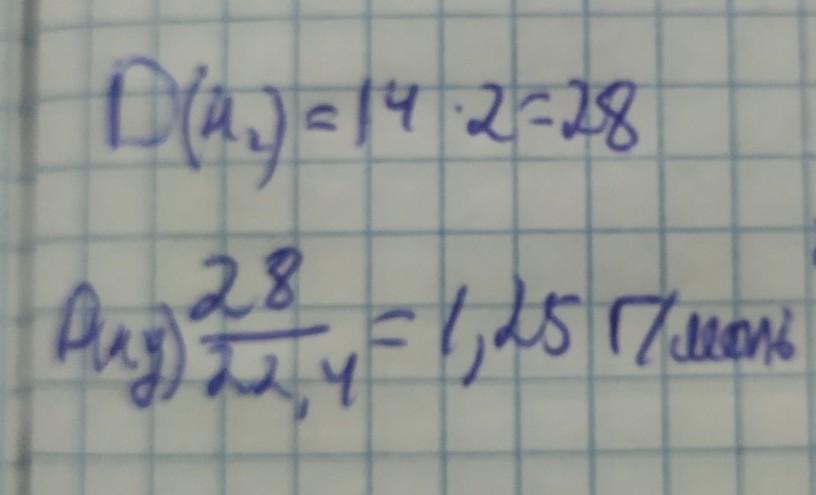 D(H₂) = 14 · 2 = 28
D(н.у) 28/22,4 = 1,25 г/моль